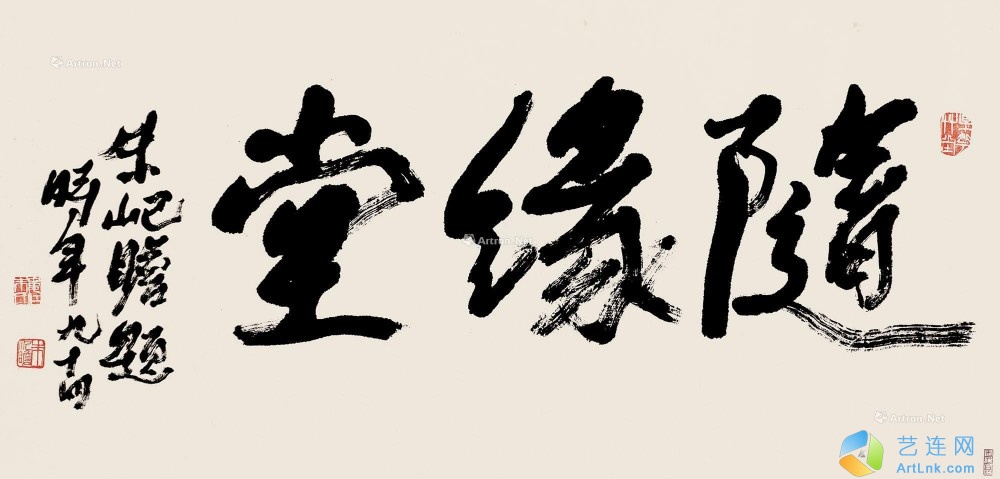 隨緣堂
朱屺瞻題
時年九十四
Artron.Net
Artron.Net
Artron.Net
艺连网
ArtLnk.com